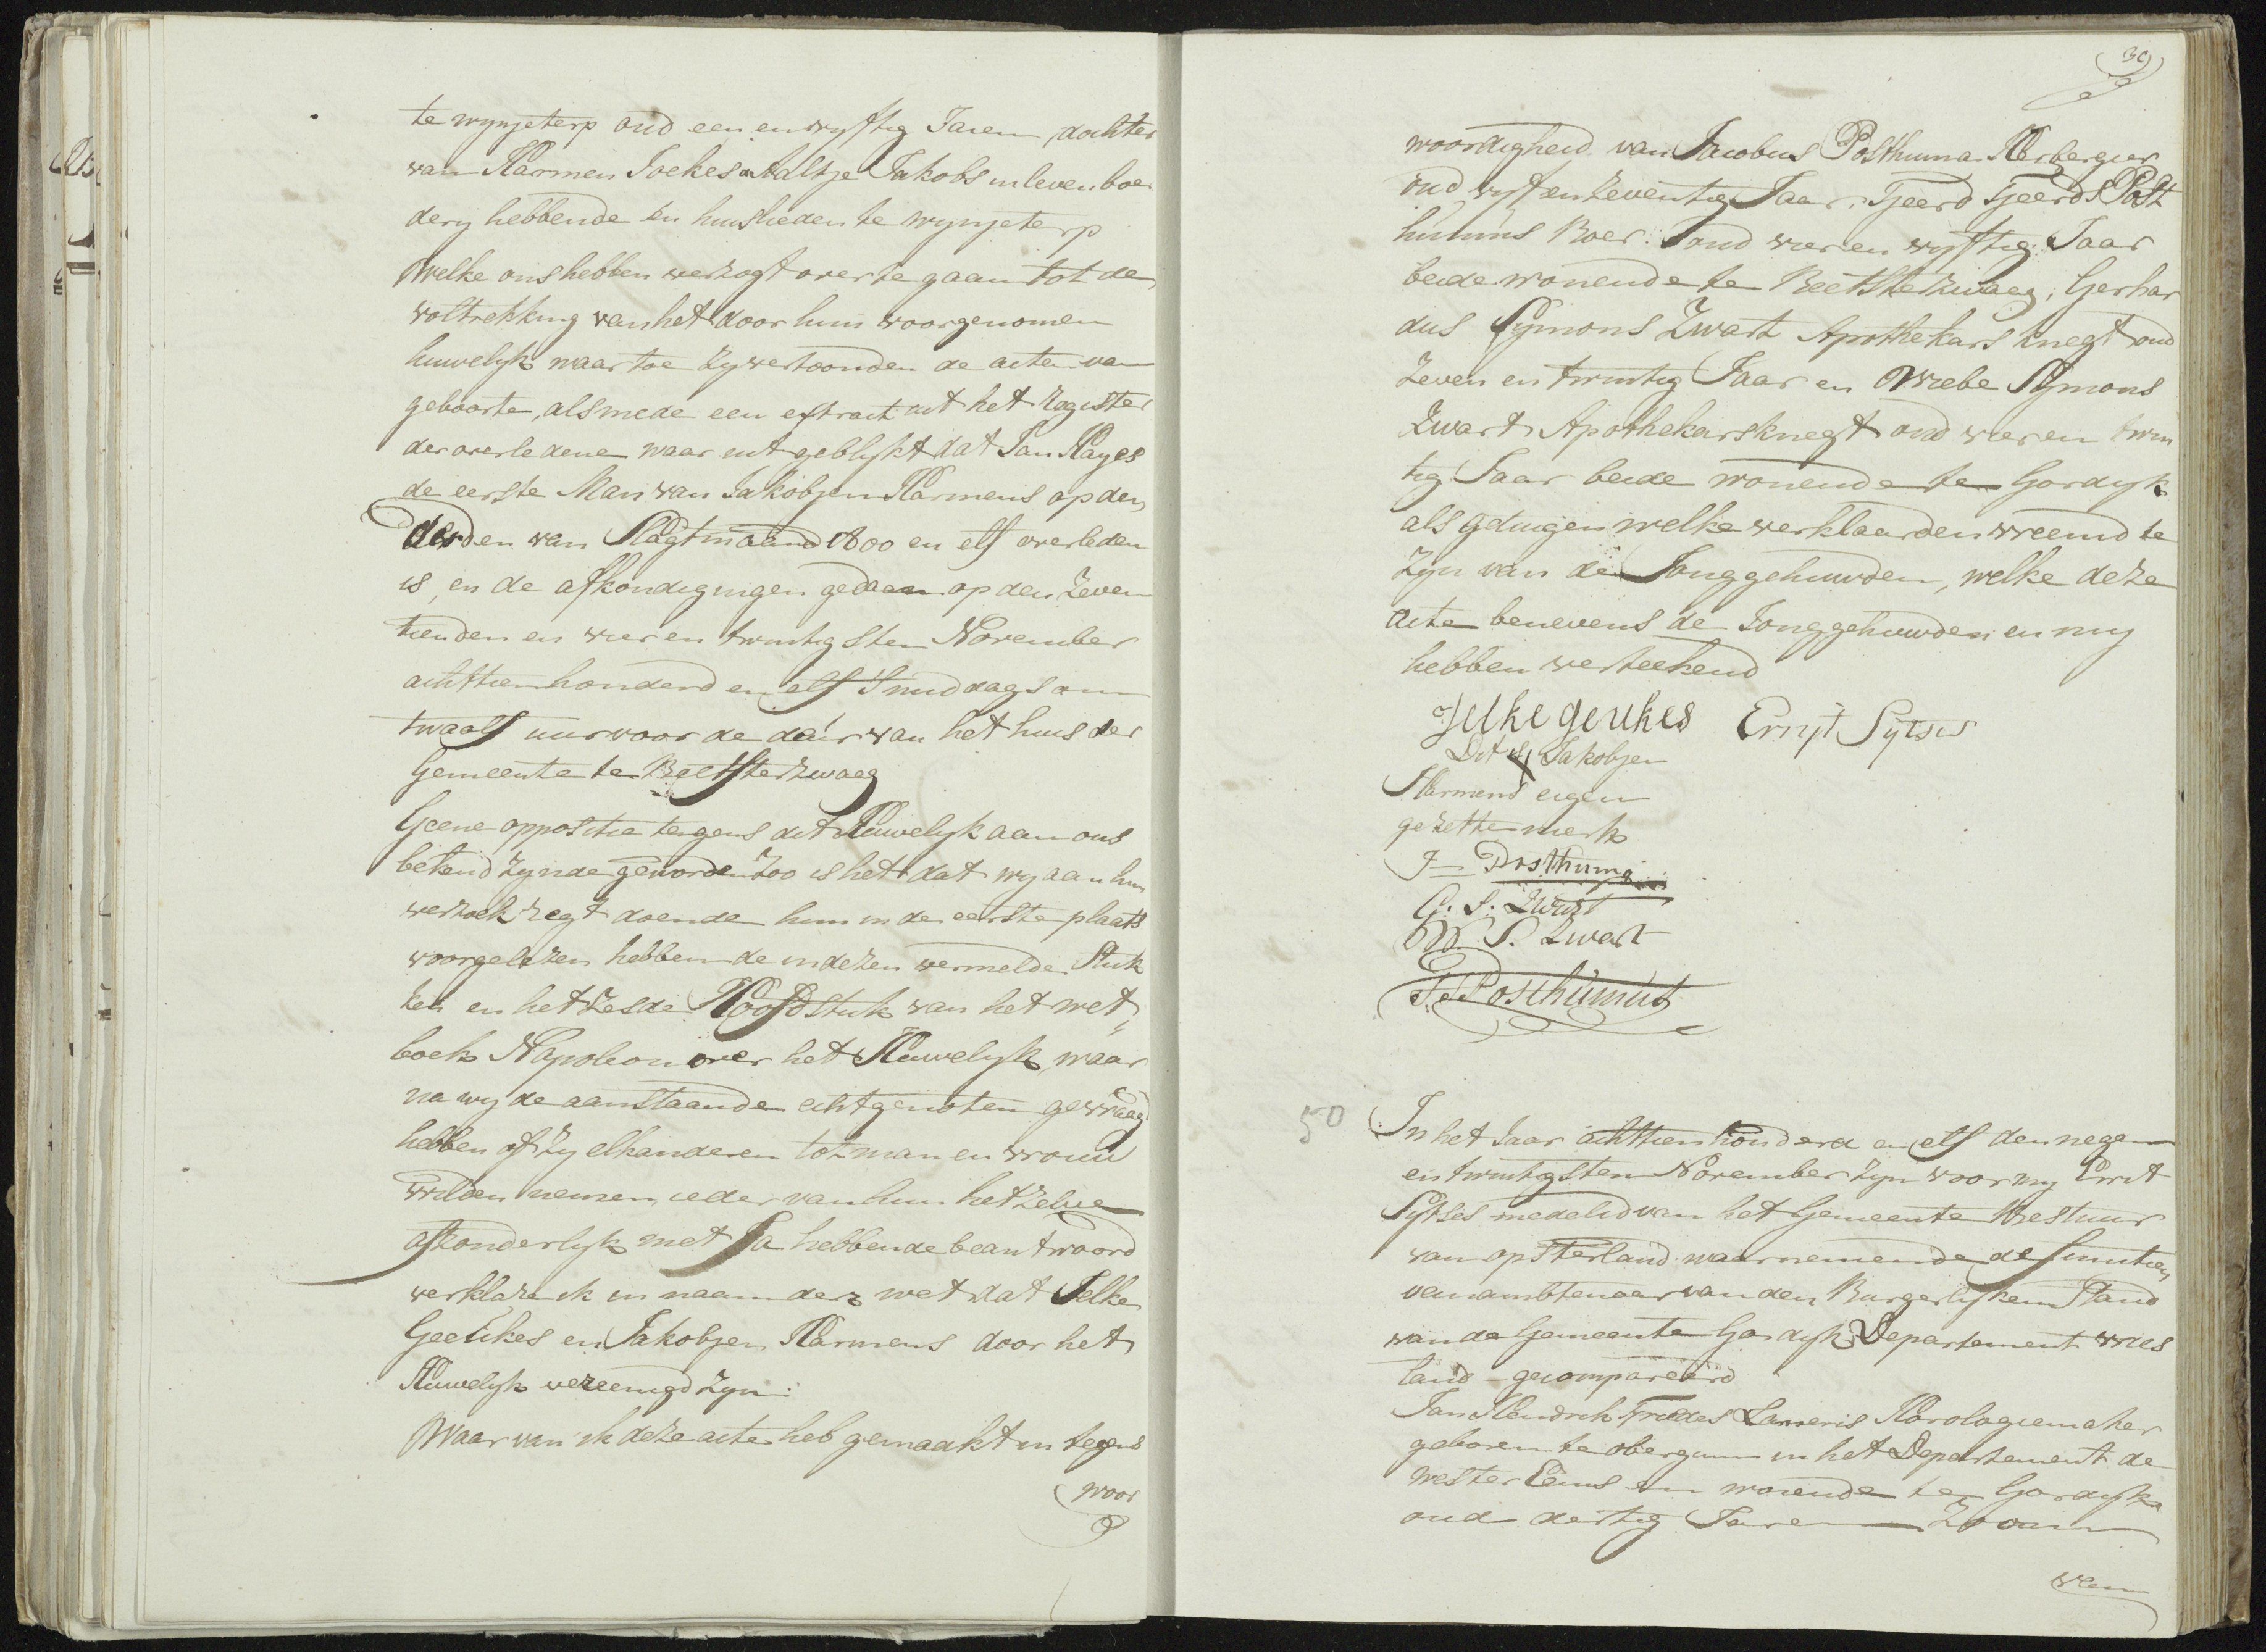 te wynjeterp oud een en vyftig Jaren, dochter
van Harmen Joekes en Aaltje Jakobs in leven boe
dery hebbende en huislieden te wynjeterp
Welke ons hebben verzogt over te gaan tot de
voltrekking van het door hun voorgenomen
huwelyk waar toe zy vertoonden de acten van
geboorte, alsmede een extract uit het Register
der overledene waar uit geblykt dat Jan Hayes
de eerste Man van Jakobjen Harmens op den
derden van Slagtmaand 1800 en elf overleden
is, en de afkondigingen gedaan op den Zeven
tienden en vier en twintigsten November
achttienhonderd en elf 's middags om
twaalf uur voor de deur van het huis der
Gemeente te Beetsterzwaag
Geene oppositie tegens dit Huwelyk aan ons
bekend zynde geworden Zoo is het dat wy aan hun
verzoek regt doende hun in de eerste plaats
voorgelezen hebben de in dezen vermelde Stuk
ken en het Zesde Hoofdstuk van het wet,,
boek Napoleon over het Huwelyk, waar
na wy de aanstaande echtgenoten gevraagd
hebben of zy elkanderen tot man en vrouw
wilden nemen, ieder van hun het zelve
afzonderlyk met Ja hebbende beantwoord
verklare ik in naam der wet dat Jelke
Geeukes en Jakobjen Harmens door het
Huwelyk vereenigd zyn.
Waar van ik deze acte heb gemaakt in tegens
woor
30
woordigheid van Jacobus Posthuma Herbergier
oud vyf en zeventig Jaar, Tjeerd Tjeerds Post
humus Boer oud vier en vyftig Jaar
beide wonende te Beetsterzwaag, Gerhar
dus Symons Zwart Apothekars knegt oud
Zeven en twintig Jaar en Wiebe Symons
Zwart Apothekarsknegt oud vier en twin
tig Jaar beide wonende te Gordyk
als getuigen welke verklaarden vreemd te
zyn van de Jonggehuwden, welke deze
acte benevens de Jonggehuwden en my
hebben verteekend
Jelke geukes Errijt Sytses
Dit is X Jakobjen
Harmens eigen
gezette merk
J Posthuma
G. S. Zwart
W. S. Zwart
T. T. Posthumus
50
In het Jaar achttienhonderd en elf den negen
en twintigsten November zyn voor my Errit
Sytses medelid van het Gemeente Bestuur
van opsterland waarnemende de functien
van ambtenaar van den Burgerlyken Stand
van de Gemeente Gordyk Departement vries
land – gecompareerd
Jan Hendrik Lameris Horologiemaker
geboren te obergum in het Departement de
wester Eems en wonende te Gordyk
oud dertig Jaren Zoon
van